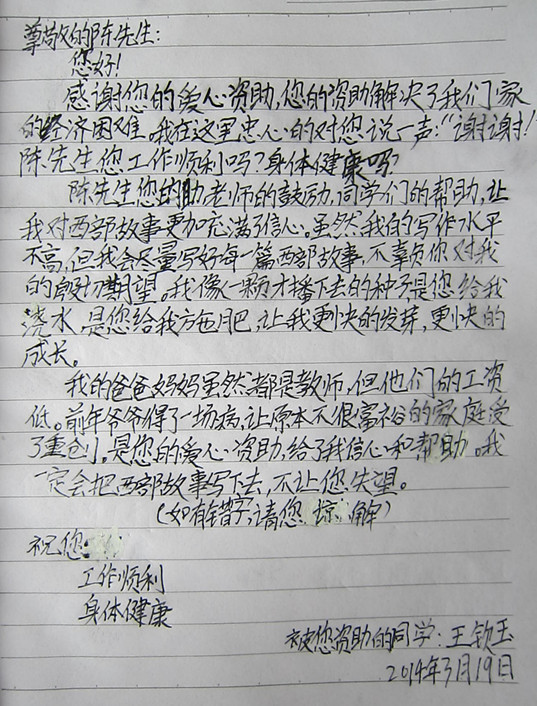 尊敬的陈先生:
您好!
感谢您的爱心资助,您的资助解决了我们家
的经济困难。我在这里忠心的对您说一声:“谢谢!
陈先生您工作顺利吗?身体健康吗?
陈先生您的助老师的鼓励,同学们的帮助,让
我对西部故事更加充满了信心。虽然我的写作水平
不高,但我会尽量写好每一篇西部故事,不辜负你对我
的殷切期望。我像一颗才播下去的种子是您给我
浇水,是您给我施肥,让我更快的发芽,更快的
成长。
我的爸爸妈妈虽然都是教师,但他们的工资
低。前年爷爷得了一场病,让原本不很富裕的家庭受
了重创,是您的爱心资助,给了我信心和帮助。我
一定会把西部故事写下去,不让您失望。
(如有错字,请您谅解)
祝您:
工作顺利
身体健康
被您资助的同学:王钦玉
2014年3月19日